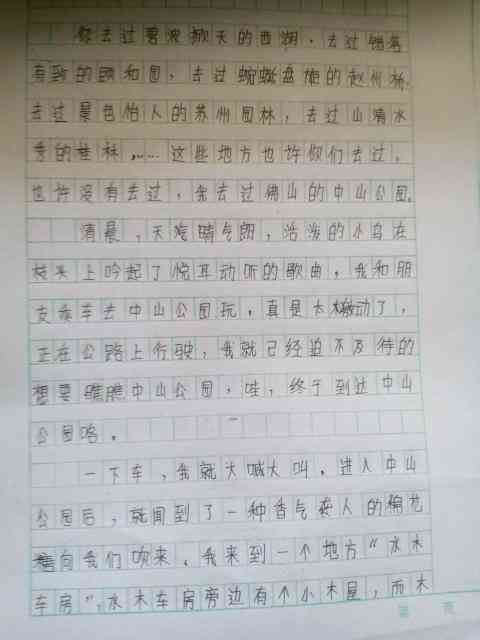 你去过碧波掀天的西湖，去过错落
有致的颐和园，去过蜿蜒盘旋的赵州桥，
去过景色怡人的苏州园林，去过山清水
秀的桂林，……这些地方也许你们去过，
也许没有去过，我去过佛山的中山公园。
清晨，天汽晴气朗，活泼的小鸟在
枝头上吟起了悦耳动听的歌曲，我和朋
友乘车去中山公园玩，真是太激动了，
正在公路上行驶，我就已经迫不及待的
想要瞧瞧中山公园，哇，终于到达中山
公园咯。
一下车，我就大喊大叫。进入中山
公园后，就闻到了一种香气袭人的棉花
向我们吹来，我来到一个地方“水木
车房”，水木车房旁边有个小木屋，而木